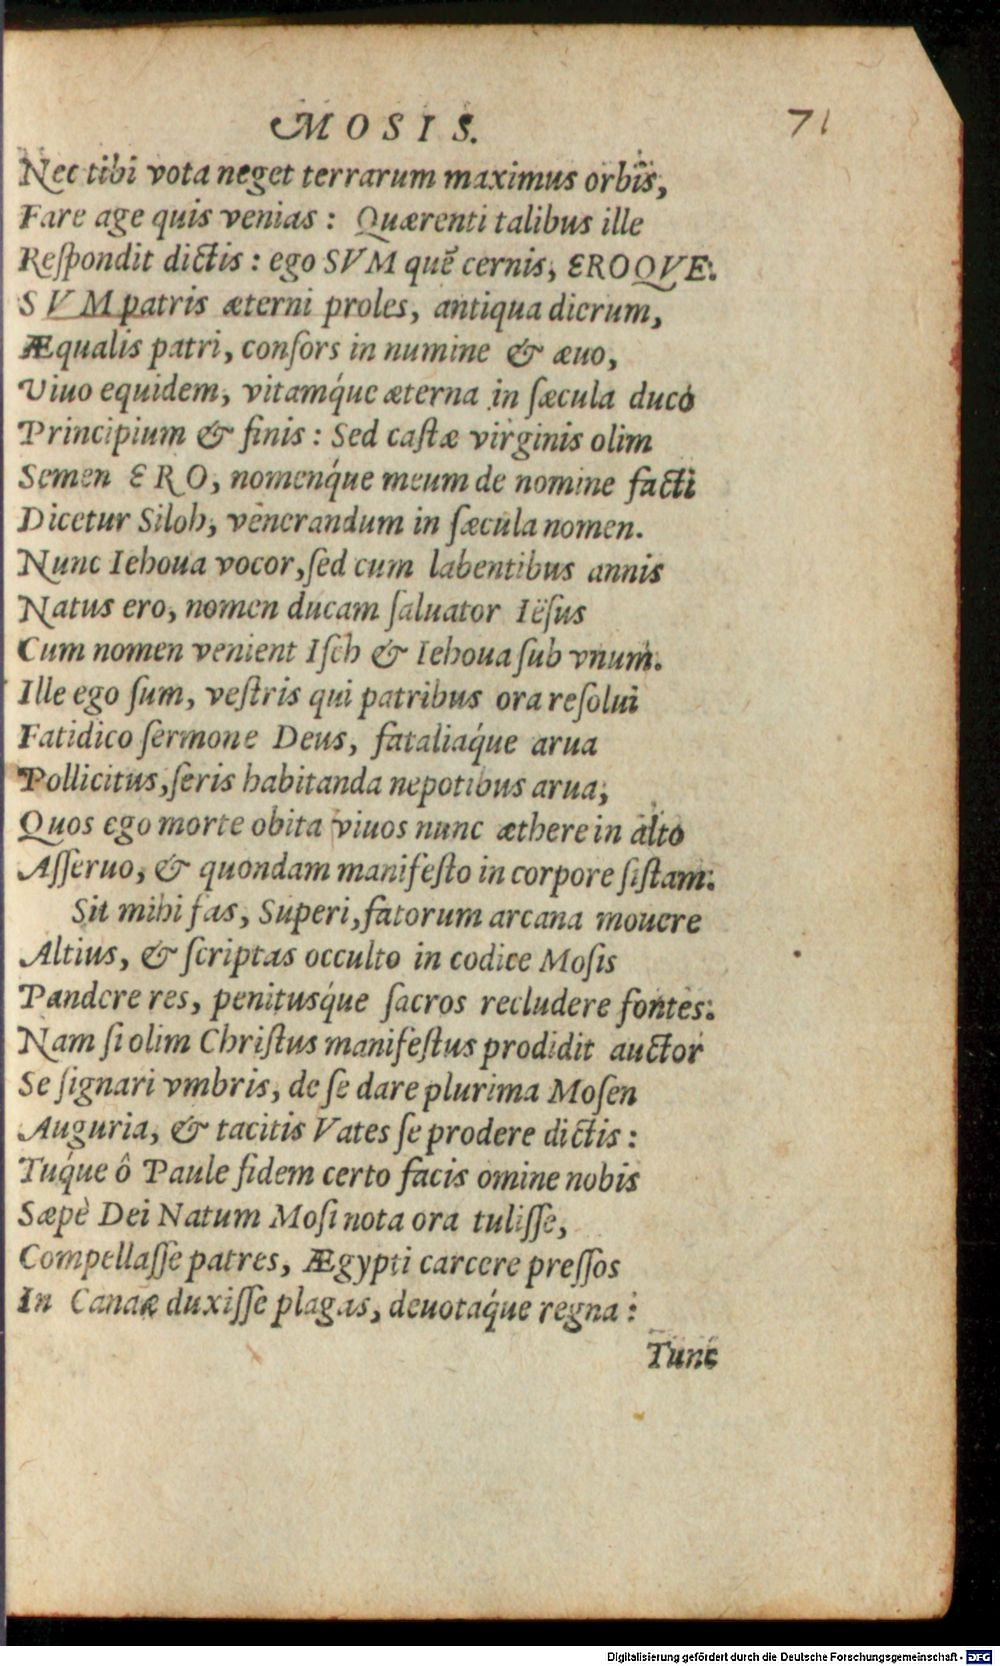 MOSIS. 71
Nec tibi vota neget terrarum maximus orbis,
Fare age quis venias : Quærenti talibus ille
Reſpondit dictis : ego SVM quē cernis, EROQVE:
SVM patris æterni proles, antiqua dierum,
Æqualis patri, conſors in numine & æuo,
Viuo equidem, vitamq́ue æterna in ſæcula duco
Principium & finis : Sed caſtæ virginis olim
Semen ERO, nomenq́ue meum de nomine facti
Dicetur Siloh, venerandum in ſæcula nomen.
Nunc Iehoua vocor, ſed cum labentibus annis
Natus ero, nomen ducam ſaluator Iëſus
Cum nomen venient Iſch & Iehoua ſub vnum.
Ille ego ſum, veſtris qui patribus ora reſolui
Fatidico ſermone Deus, fataliaq́ue arua
Pollicitus, ſeris habitanda nepotibus arua,
Quos ego morte obita viuos nunc æthere in alto
Aſſeruo, & quondam manifeſto in corpore ſiſtam:
Sit mihi fas, Superi, fatorum arcana mouere
Altius, & ſcriptas occulto in codice Moſis
Pandere res, penitusq́ue ſacros recludere fontes:
Nam ſi olim Chriſtus manifeſtus prodidit auctor
Se ſignari vmbris, de ſe dare plurima Moſen
Auguria, & tacitis Vates ſe prodere dictis :
Tuq́ue ô Paule fidem certo facis omine nobis
Sæpè Dei Natum Moſi nota ora tuliſſe,
Compellaſſe patres, Ægypti carcere preſſos
In Canaæ duxiſſe plagas, deuotaq́ue regna :
Tunc
Digitalisierung gefördert durch die Deutsche Forschungsgemeinschaft - DFG